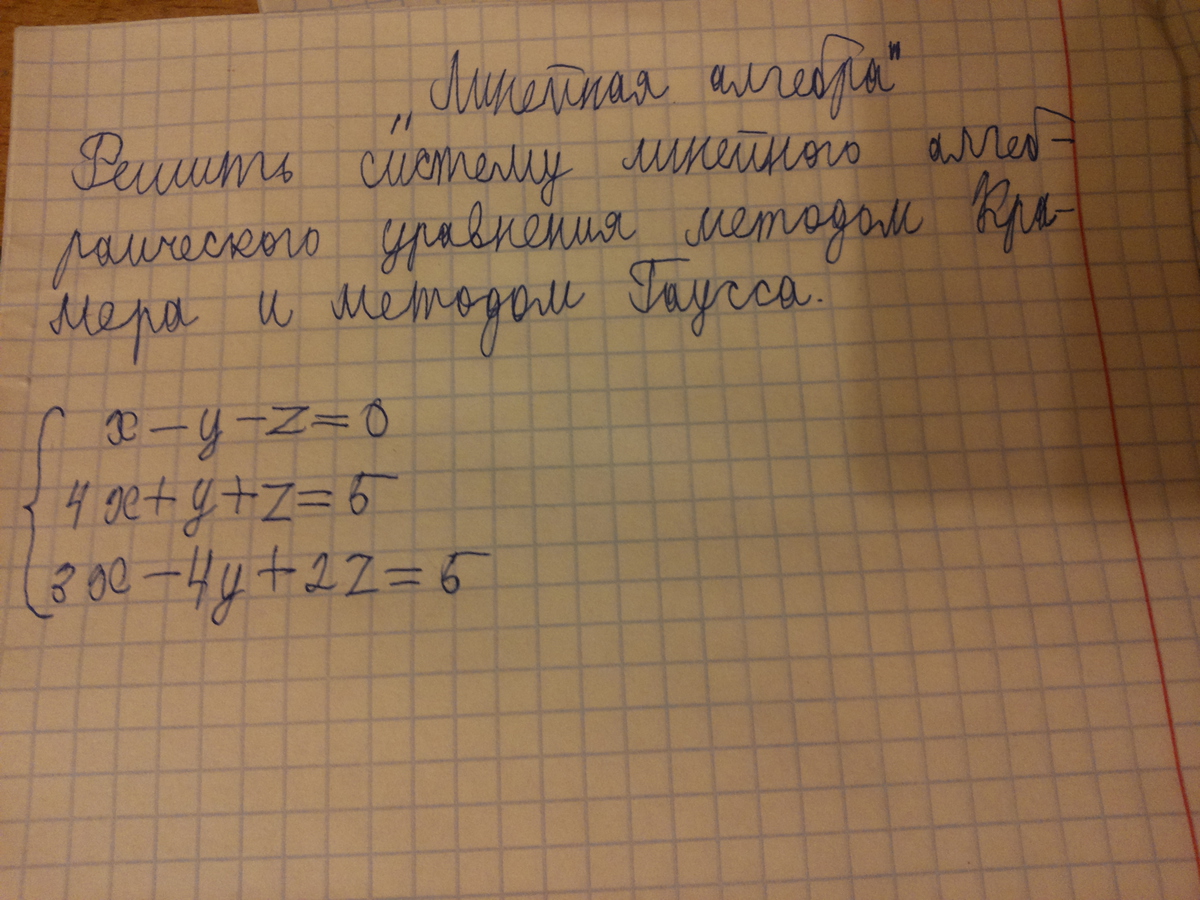 „Линейная алгебра"
Решить систему линейного алгеб-
раического уравнения методом Кра-
мера и методом Гаусса.
x - y - z = 0
4x + y + z = 5
3x - 4y + 2z = 5